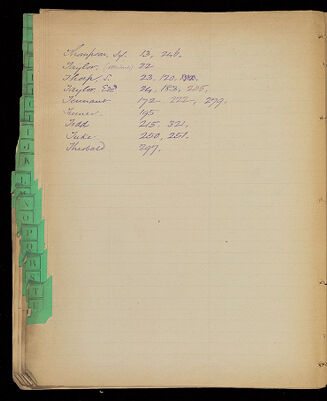 Thompson, Jf. 13, 246.
Taylor. 22
Thorp S. 23, 120, 180.
Taylor, 24, 183, 205,
Tennant 172 222, 279.
Tenner 195
Todd 215, 321.
Tuke 250, 251.
Theobald 297.
I
J
K
L
N
O
P
Q
R
S
T